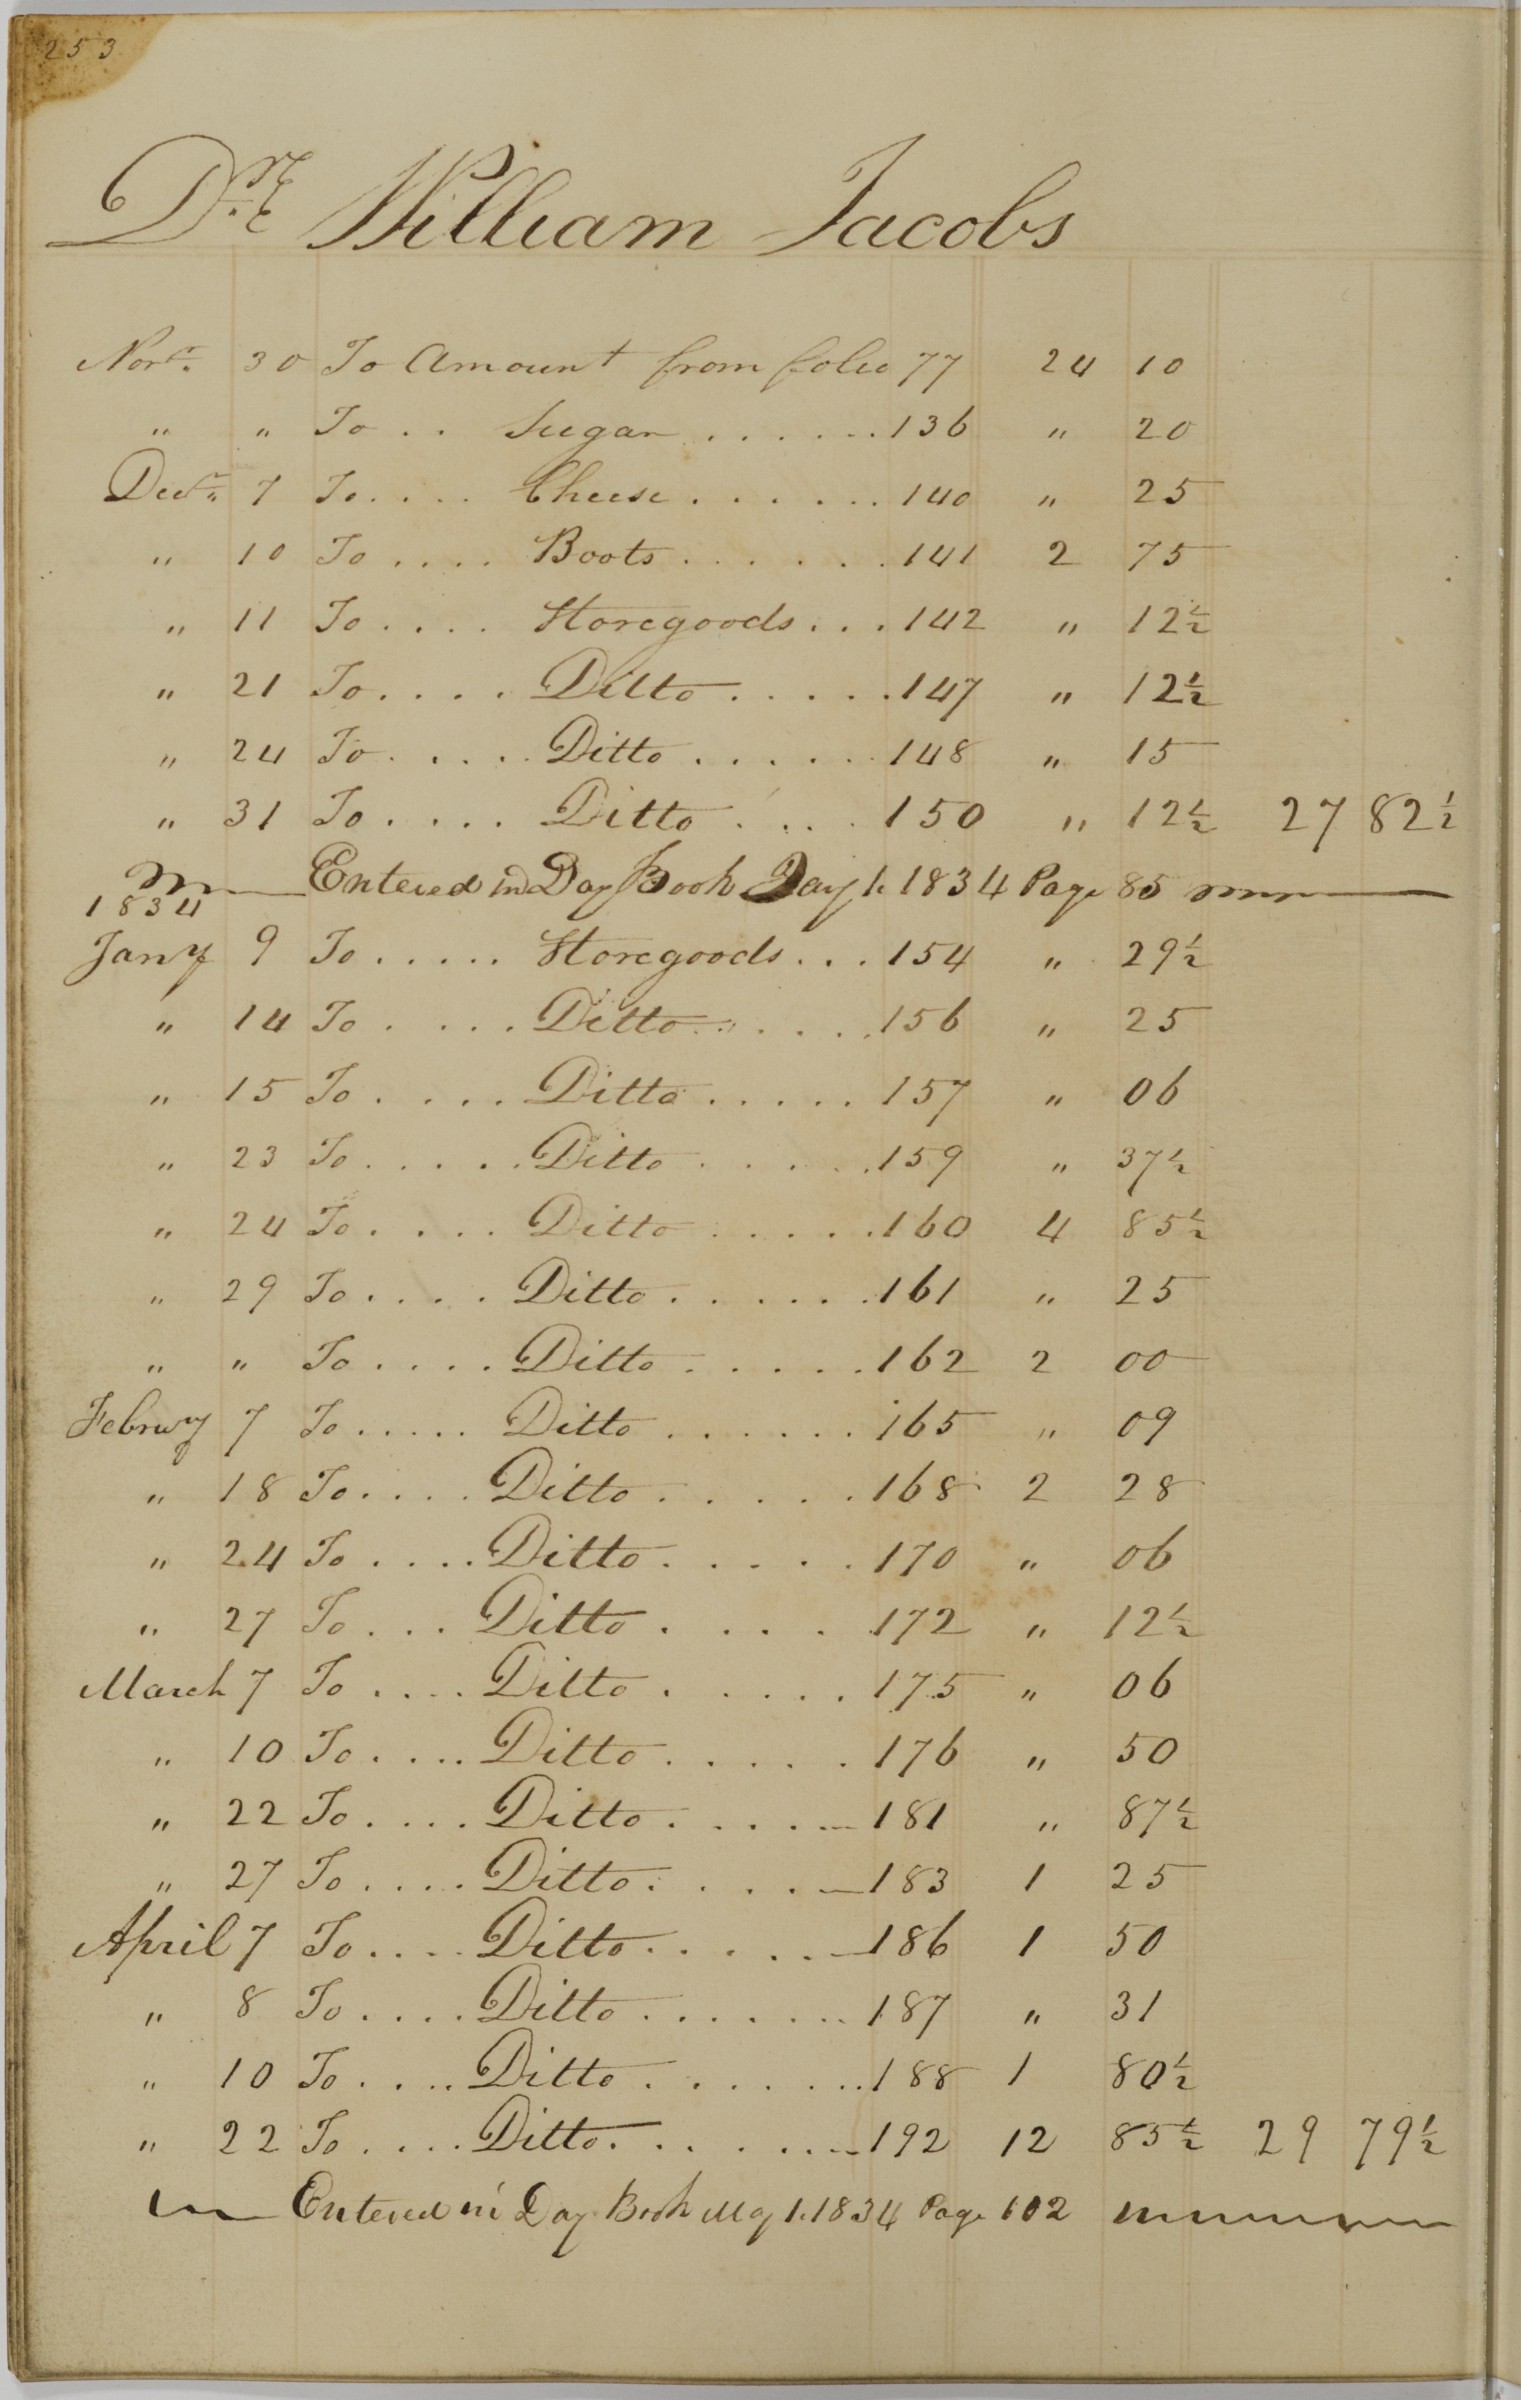 253
Dr. William Jacobs
Novr. 30 To Amount from folio 77 24 10
" " To . . Sugar . . . . . . 136 " 20
Decr. 7 To . . . . Cheese . . . . . . 140 " 25
" 10 To . . . . Boots . . . . . . 141 2 75
" 11 To . . . . Storegoods . . . 142 " 12½
" 21 To . . . . Ditto . . . . . 147 " 12½
" 24 To . . . . Ditto . . . . . 148 " 15
" 31 To . . . . Ditto . . . . 150 " 12½ 27 82½
Entered in Day Book 1. 1834 Page 85
1834
Jany 9 To . . . . . Storegoods . . . 154 " 29½
" 14 To . . . . Ditto . . . . . 156 " 25
" 15 To . . . . Ditto . . . . . 157 " 06
" 23 To . . . . . Ditto . . . . . 159 " 37½
" 24 To . . . . Ditto . . . . . 160 4 85½
" 29 To . . . . Ditto . . . . . . 161 " 25
" " To . . . . Ditto . . . . . 162 2 00
Febrwy 7 To . . . . . Ditto . . . . . . 165 " 09
" 18 To . . . . Ditto . . . . . 168 2 28
" 24 To . . . . Ditto . . . . . 170 " 06
" 27 To . . . Ditto . . . . 172 " 12½
March 7 To . . . . Ditto . . . . . 175 " 06
" 10 To . . . . Ditto . . . . . 176 " 50
" 22 To . . . . Ditto . . . . . 181 " 87½
" 27 To . . . . Ditto . . . . 183 1 25
April 7 To . . . . Ditto . . . . . 186 1 50
" 8 To . . . . Ditto . . . . . . . 187 " 31
" 10 To . . . . Ditto . . . . . . . 188 1 80½
" 22 To . . . . Ditto . . . . . . . 192 12 85½ 29 79½
Entered in Day Book May 1. 1834 Page 102